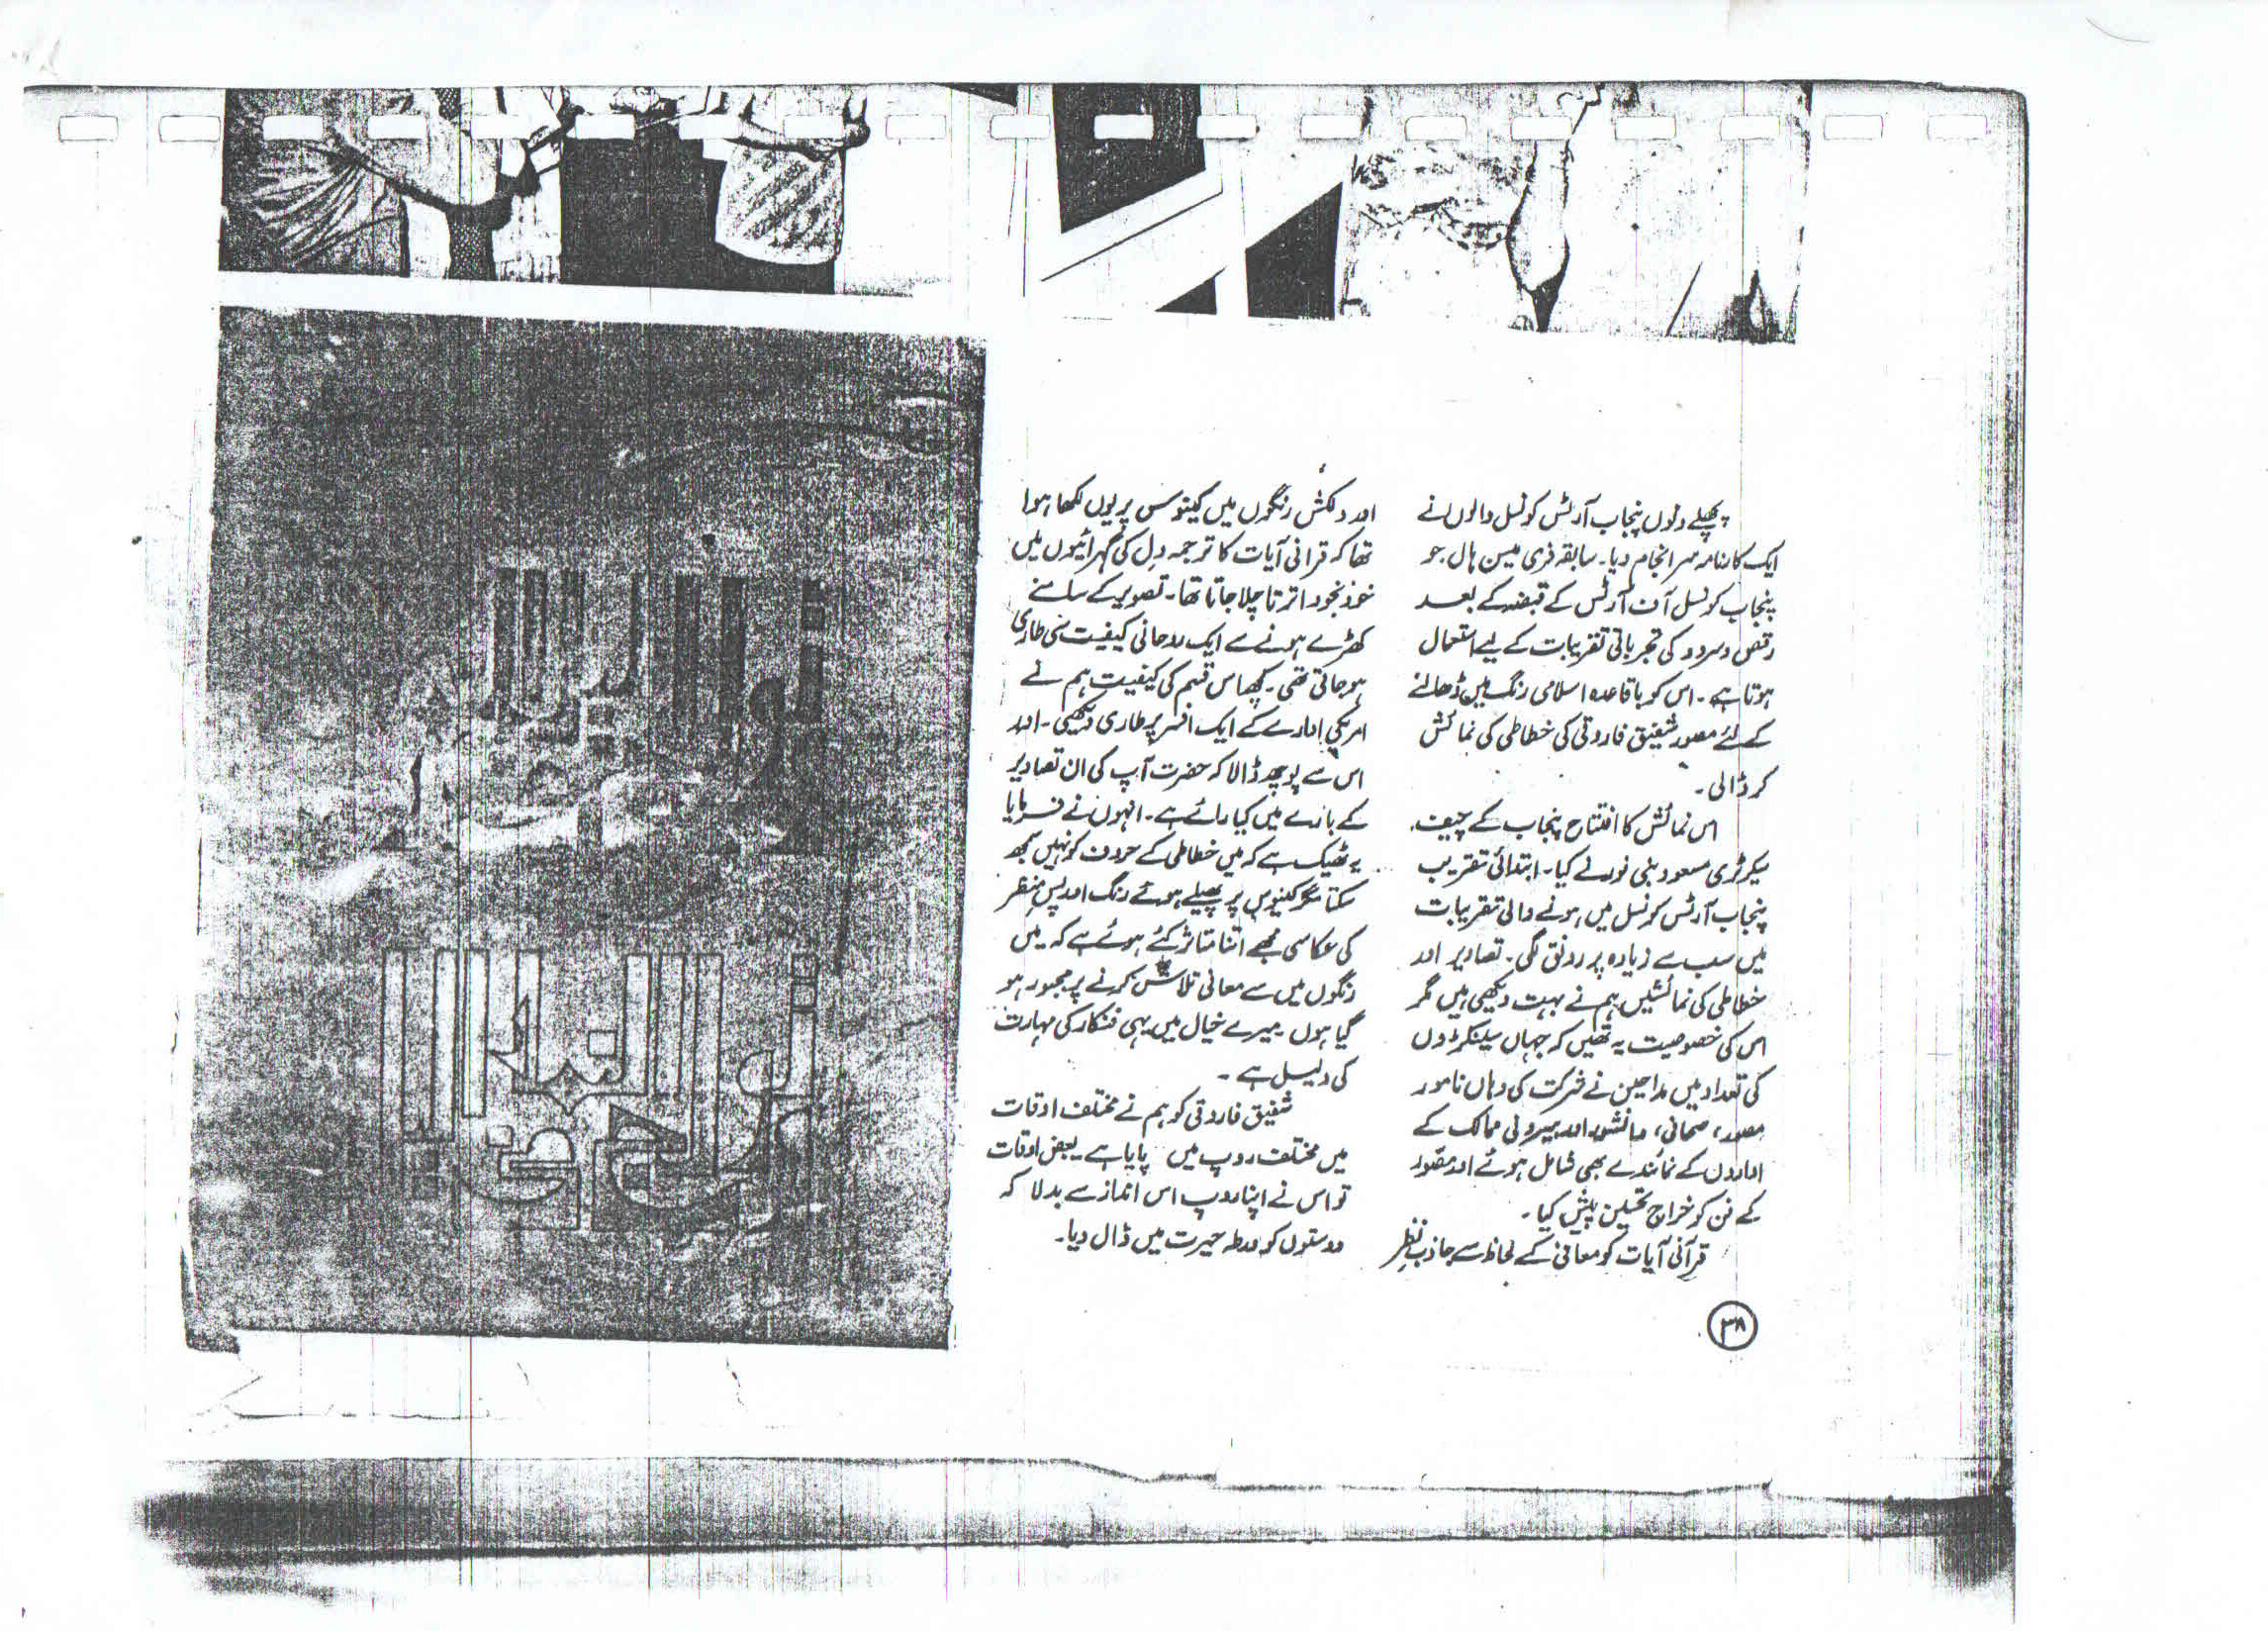 پچھلے دنوں پنجاب آرٹس کونسل والوں نے
ایک کارنامہ سر انجام دیا۔ سابقہ فری میسن ہال جو
پنجاب کونسل آف آرٹس کے قبضہ کے بعد
رقص و سرود کی تجرباتی تقریبات کے لیے استعمال
ہوتا ہے۔ اس کو باقاعدہ اسلامی رنگ میں ڈھالنے
کے لئے مصور شفیق فاروقی کی خطاطی کی نمائش
کر ڈالی۔
اس نمائش کا افتتاح پنجاب کے چیف
سیکرٹری مسعود نبی نور نے کیا۔ ابتدائی تقریب
پنجاب آرٹس کونسل میں ہونے والی تقریبات
میں سب سے زیادہ پر رونق لگی۔ تصاویر اور
خطاطی کی نمائشیں ہم نے بہت دیکھی ہیں مگر
اس کی خصوصیت یہ تھیں کہ جہاں سینکڑوں
کی تعداد میں مداحین نے شرکت کی وہاں نامور
مصور، صحافی، دانشور اور بیرونی ممالک کے
اداروں کے نمائندے بھی شامل ہوئے اور مصّور
کے فن کو خراج تحسین پیش کیا۔
قرآنی آیات کو معافی کے لحاظ سے جاذب نظر
اور دلکش رنگوں میں کینوس پر یوں لکھا ہوا
تھا کہ قرانی آیات کا ترجمہ دل کی گہرائیوں میں
خود بخود اترتا چلا جاتا تھا۔ تصویر کے سامنے
کھڑے ہونے سے ایک روحانی کیفیت سی طاری
ہو جاتی تھی۔ کچھ اس قسم کی کیفیت ہم نے
امریکی ادارے کے ایک افسر پر طاری دیکھی۔ اور
اس سے پوچھ ڈالا کہ حضرت آپ کی ان تصاویر
کے بارے میں کیا رائے ہے۔ انہوں نے فرمایا
یہ ٹھیک ہے کہ میں خطاطی کے حروف کو نہیں سمجھ
سکتا مگر کینوس پر پھیلے ہوئے رنگ اور پس منظر
کی عکاسی مجھے اتنا متاثر کئے ہوئے ہے کہ میں
رنگوں میں سے معانی تلاش کرنے پر مجبور ہو
گیا ہوں میرے خیال میں یہی فنکار کی مہارت
کی دلیل ہے۔
شفیق فاروقی کو ہم نے مختلف اوقات
میں مختلف روپ میں پایا ہے بعض اوقات
تو اس نے اپنا روپ اس انداز سے بدلا کہ
دوستوں کو ورطہ حیرت میں ڈال دیا۔
۳۸